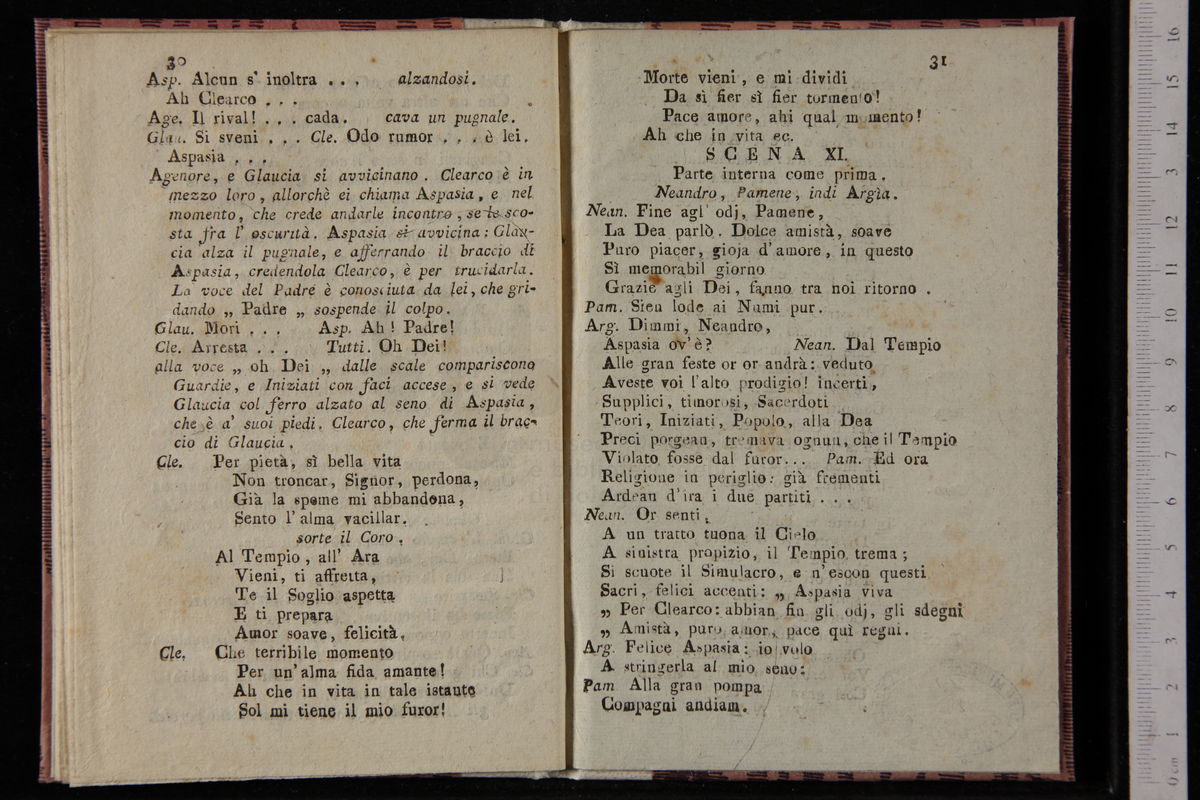 30
Asp. Alcun s' inoltra . . . alzandosi.
Ah Clearco . . .
Age. Il rival! . . . cada. cava un pugnale.
Glau. Si sveni . . . Cle. Odo rumor . . . è lei.
Aspasia . . .
Agenore, e Glaucia si avvicinano. Clearco è in
mezzo loro, allorchè ei chiama Aspasia, e nel
momento, che crede andarle incontro, se le sco-
sta fra l' oscurità. Aspasia si avvicina: Glau-
cia alza il pugnale, e afferrando il braccio di
Aspasia, credendola Clearco, è per trucidarla.
La voce del Padre è conosciuta da lei, che gri-
dando „ Padre „ sospende il colpo.
Glau. Mori . . . Asp. Ah! Padre!
Cle. Arresta . . . Tutti. Oh Dei!
alla voce „ oh Dei „ dalle scale compariscono
Guardie, e Iniziati con faci accese, e si vede
Glaucia col ferro alzato al seno di Aspasia,
che è a' suoi piedi. Clearco, che ferma il brac-
cio di Glaucia.
Cle. Per pietà, sì bella vita
Non troncar, Signor, perdona,
Già la speme mi abbandona,
Sento l' alma vacillar.
sorte il Coro.
Al Tempio, all' Ara
Vieni, ti affretta,
Te il Soglio aspetta
E ti prepara
Amor soave, felicità.
Cle. Che terribile momento
Per un' alma fida amante!
Ah che in vita in tale istante
Sol mi tiene il mio furor!
31
Morte vieni, e mi dividi
Da sì fier sì fier tormento!
Pace amore, ahi qual momento!
Ah che in vita ec.
SCENA XI.
Parte interna come prima.
Neandro, Pamene, indi Argìa.
Nean. Fine agl' odj, Pamene,
La Dea parlò. Dolce amistà, soave
Puro piacer, gioja d' amore, in questo
Sì memorabil giorno
Grazie agli Dei, fanno tra noi ritorno .
Pam. Sien lode ai Numi pur.
Arg. Dimmi, Neandro,
Aspasia ov' è? Nean. Dal Tempio
Alle gran feste or or andrà: veduto
Aveste voi l' alto prodigio! incerti,
Supplici, timorosi, Sacerdoti
Teori, Iniziati, Popolo, alla Dea
Preci porgean, tremava ognun, che il Tempio
Violato fosse dal furor... Pam. Ed ora
Religione in periglio: già frementi
Ardean d' ira i due partiti . . .
Nean. Or senti.
A un tratto tuona il Cielo
A sinistra propizio, il Tempio trema;
Si scuote il Simulacro, e n' escon questi
Sacri, felici accenti: „ Aspasia viva
„ Per Clearco: abbian fin gli odj, gli sdegni
„ Amistà, puro amor, pace quì regni.
Arg. Felice Aspasia: io volo
A stringerla al mio seno:
Pam Alla gran pompa
Compagni andiam.